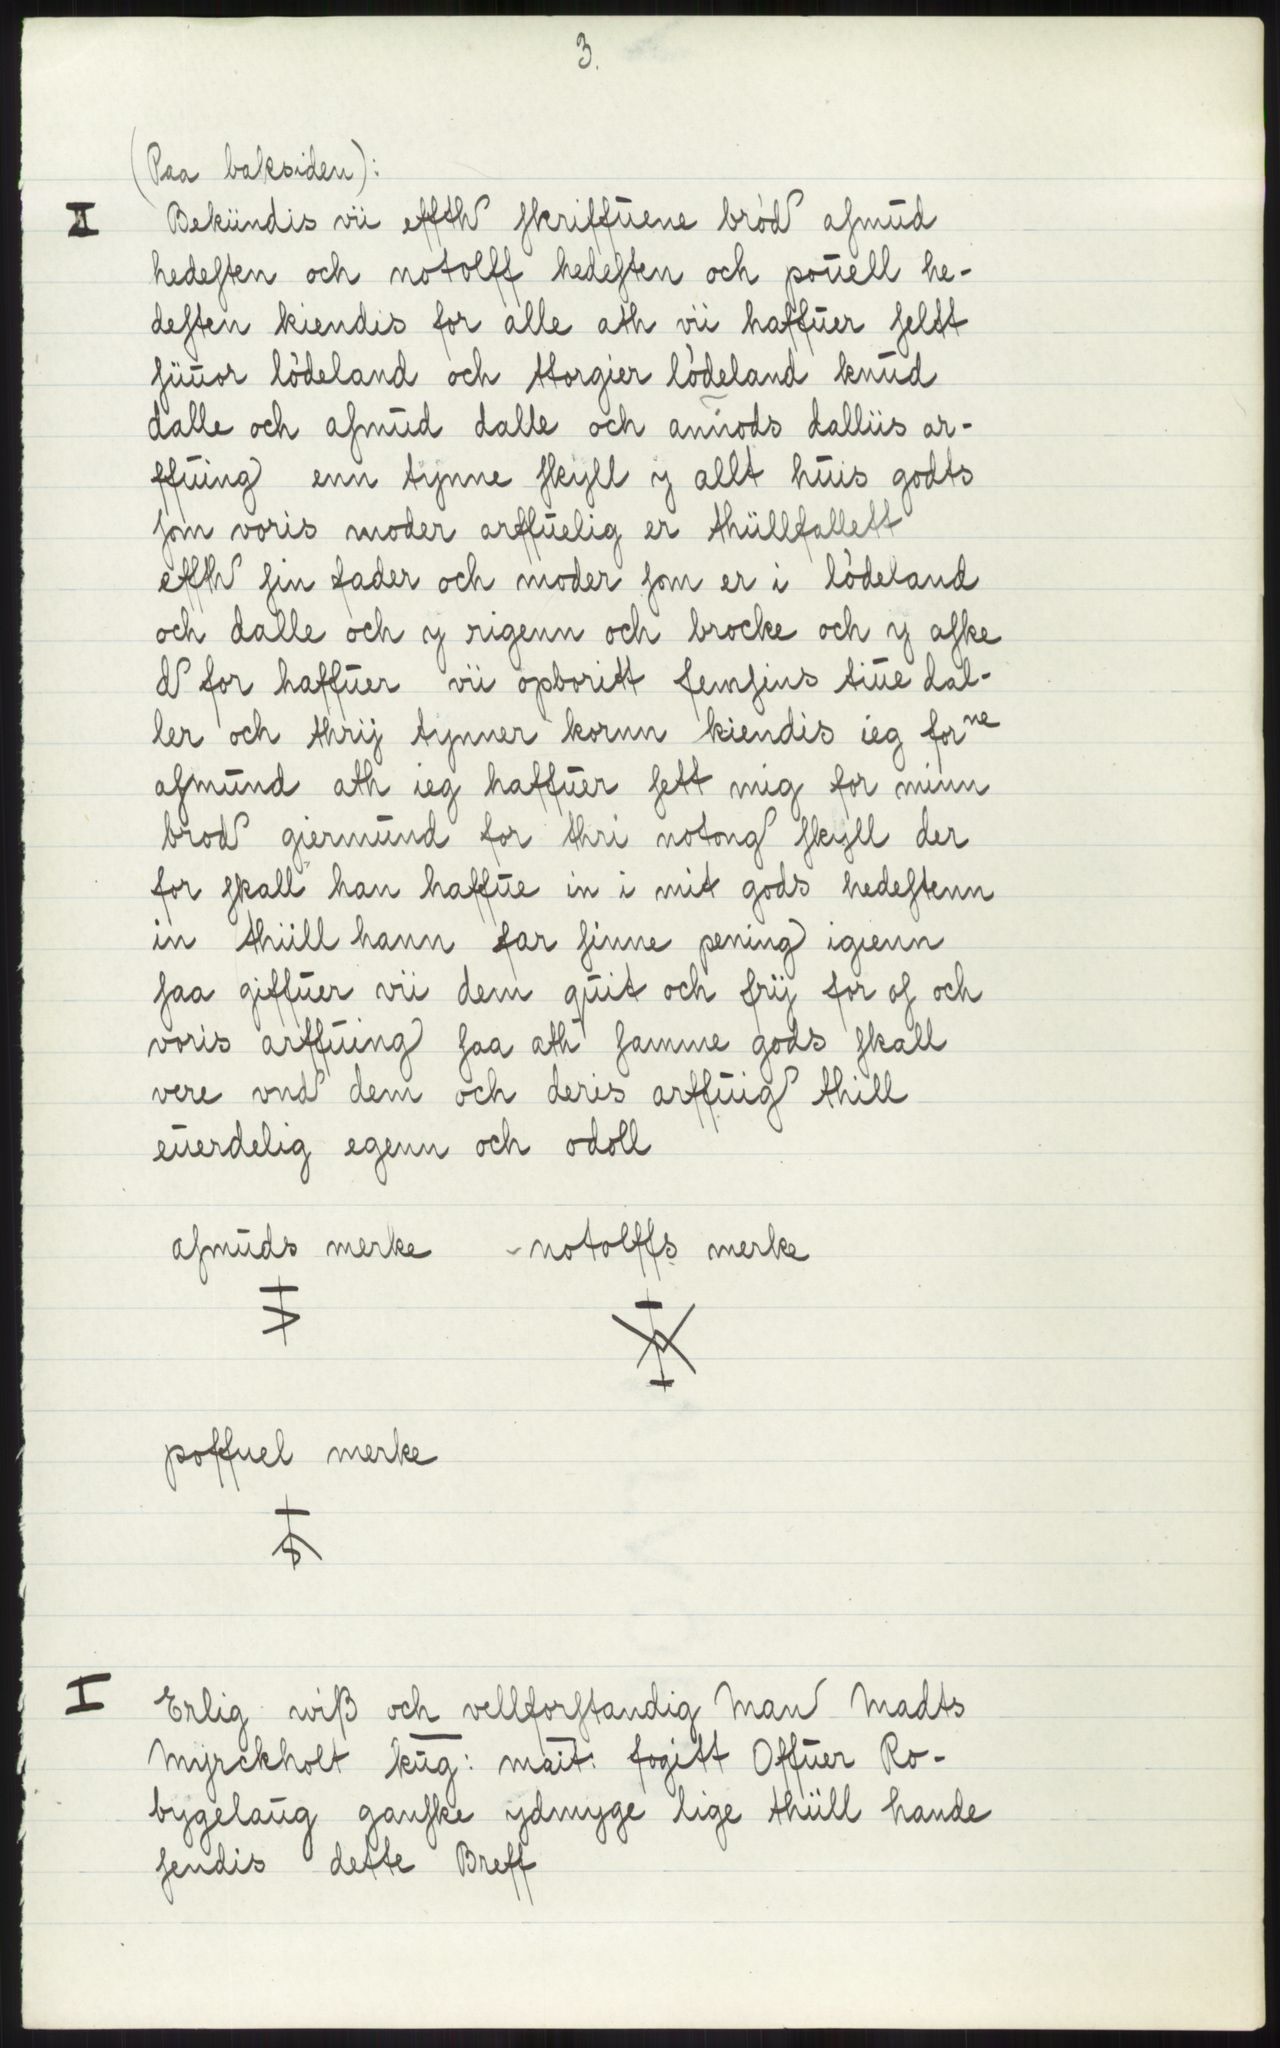 3.
(Paa baksiden):
II Bekiindis vii effth skriffuene brød asmud
hedesten och notolff hedesten och pouell he-
desten kiendis for alle ath vii haffuer seltt
siiuor lødeland och ttorgier lødeland knud
dalle och asmud dalle och amiods dalliis ar-
ffuing enn tynne skyll y allt huis godts
som voris moder arffuelig er thiillfallett
effth sin fader och moder som er i lødeland
och dalle och y rigenn och brocke och y aske
d for haffuer vii opboritt femsins tiue dal-
ler och thrij tynner kornn kiendis ieg forne
asmund ath ieg haffuer sett mig for minn
brod giermund for thri notong skyll der
for skall han haffue in i mit gods hedestenn
in thiill hann far sinne pening igienn
saa giffuer vii dem quit och frij for os och
voris arffuing saa ath samme gods skall
vere vnd dem och deris arffuig thill
euerdelig egenn och odoll
asmuds merke notolffs merke
poffuel merke
I Erlig wiß och vellforstandig Man Madts
Myrckholt kug: mait: fogitt Offuer Ro-
bygelaug ganske ydmyge lige thiill hande
sendis dette Breff